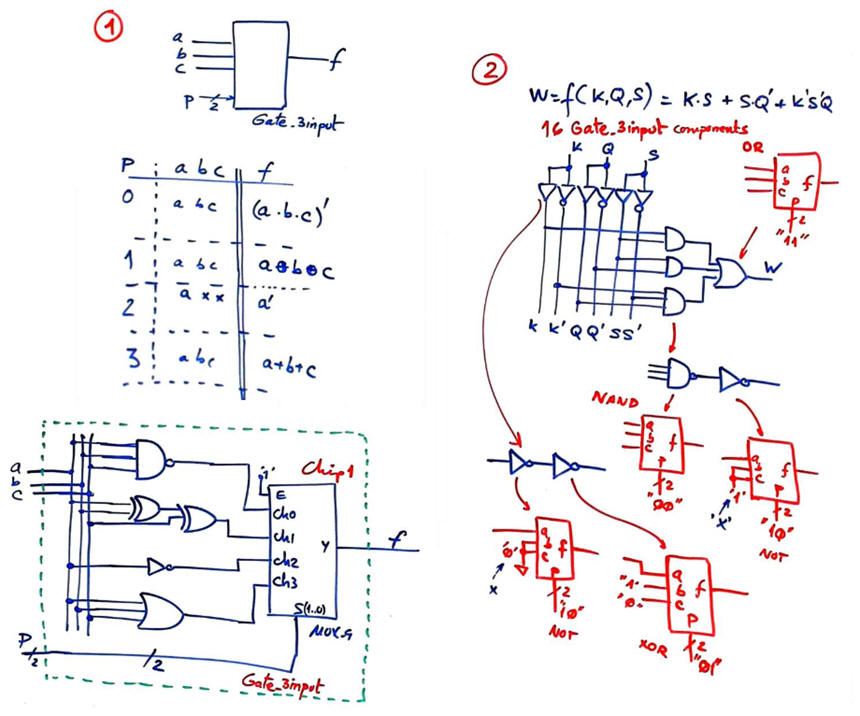 1
a
b
c
P 2
f
Gate_3input
P a b c f
0 a b c (a·b·c)'
1 a b c a⊕b⊕c
2 a x x a'
3 a b c a+b+c
a
b
c
'1'
Chip1
E
Ch0
Ch1
Ch2
Ch3
Y
f
S(1..0)
MUX_4
P
2
2
Gate_3input
2
W=f(K,Q,S) = K·S + S·Q' + K'S'Q
16 Gate_3input components
OR
K Q S
a
b
c
f
P
2
"11"
W
K K' Q Q' S S'
NAND
a
b
c
f
P
2
"00"
a
b
c
f
P
'1'
'x'
2
"10"
NOT
a
b
c
f
P
'0'
x
2
"10"
NOT
a
b
c
f
P
"1"
"0"
XOR
2
"01"